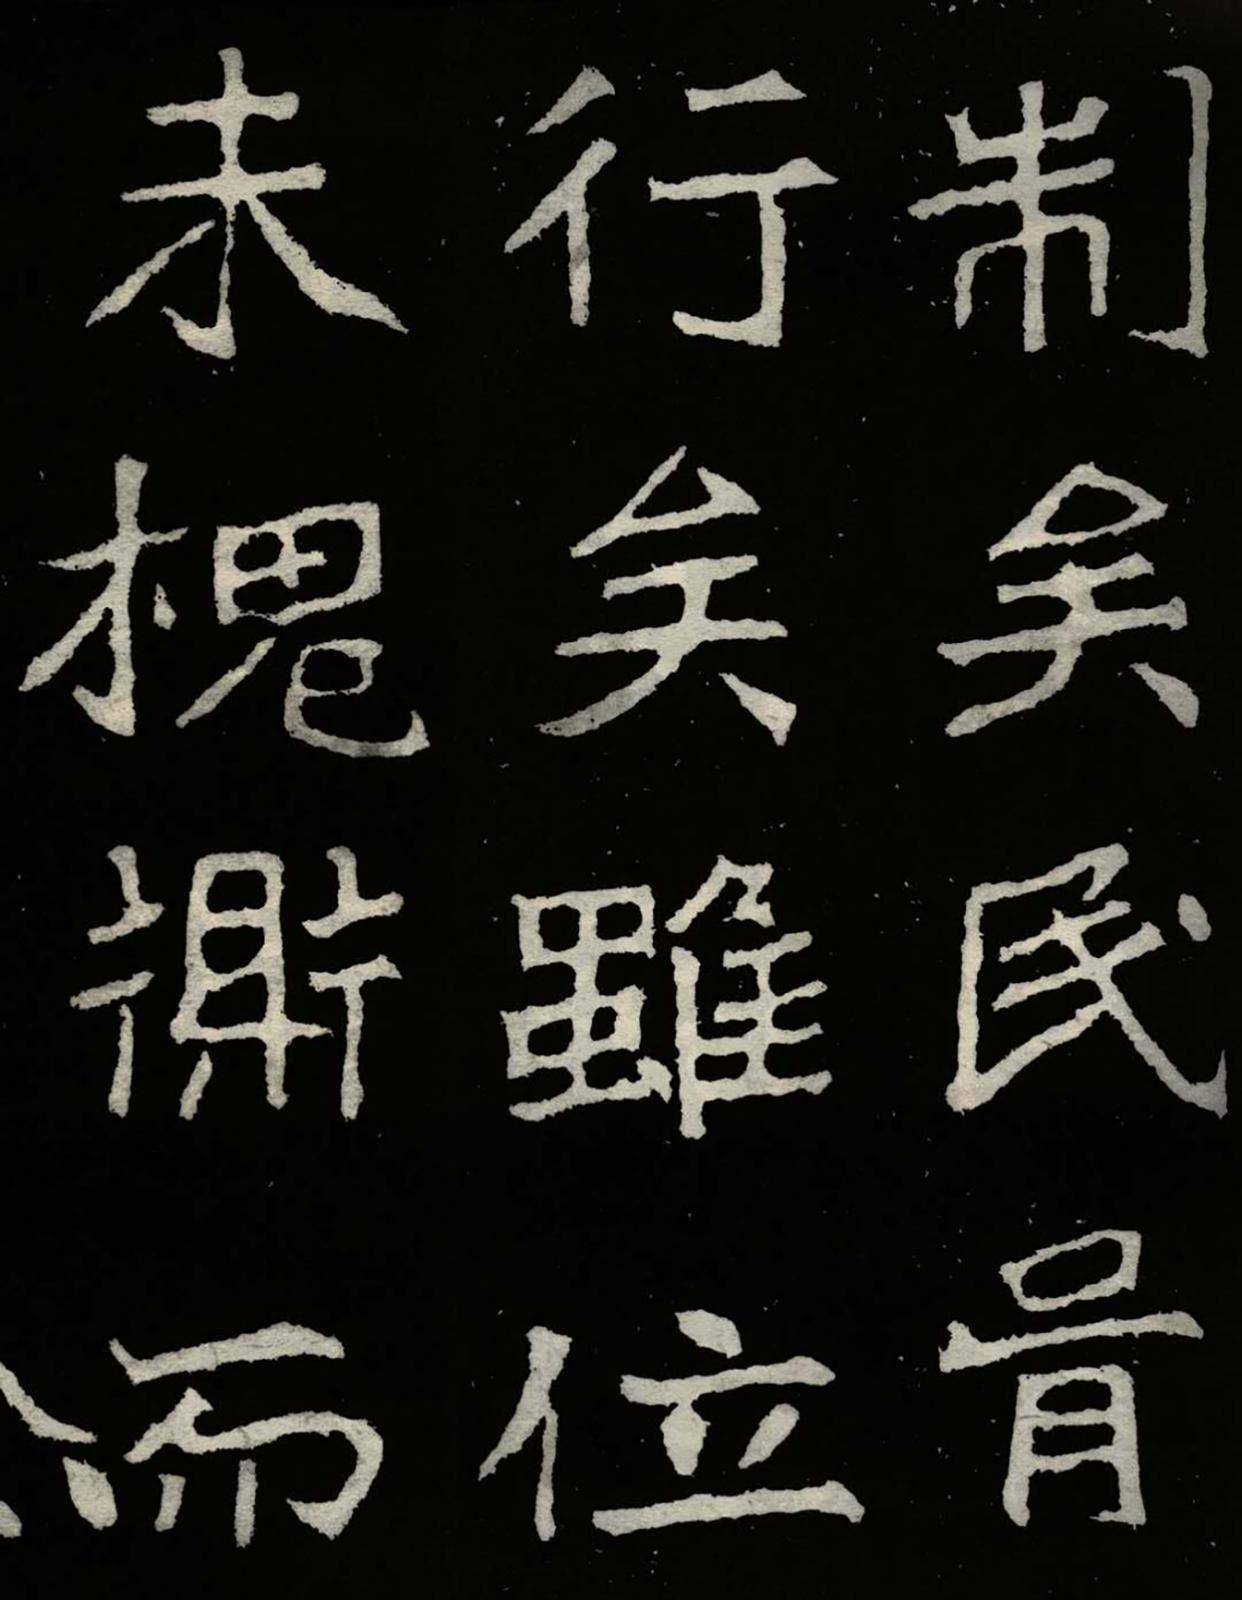 制矣民胥
行矣雖位
未槐衡而